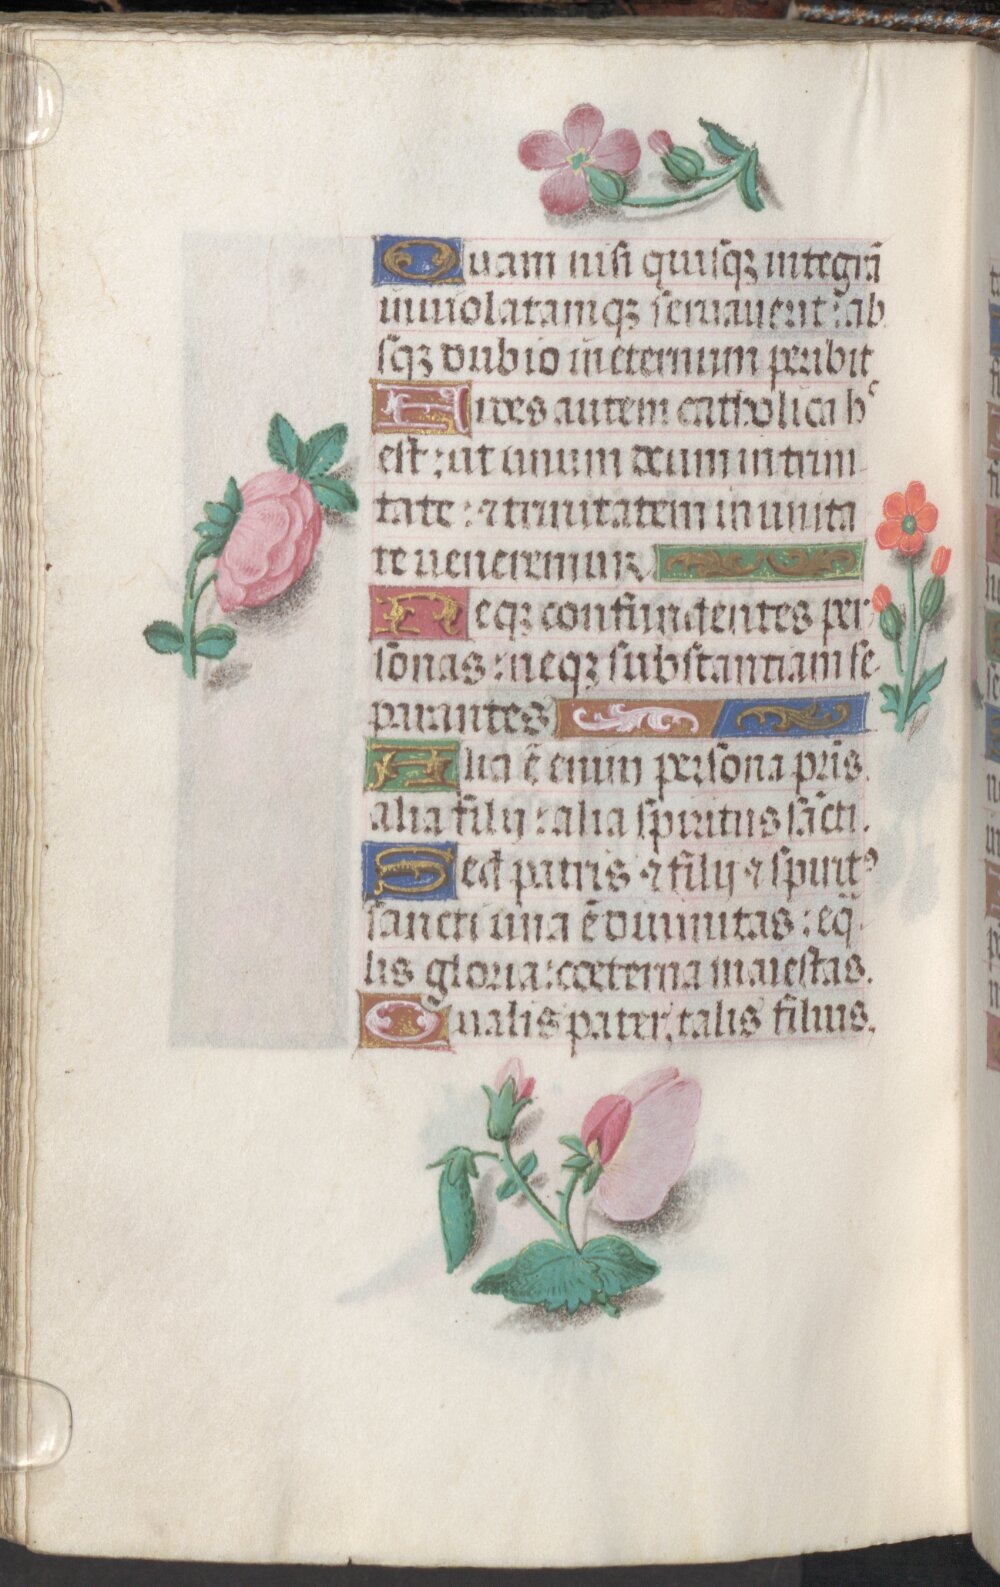 Quam nisi quisqꝫ integrā
inuiolatamqꝫ seruauerit: ab
sqꝫ dubio in eternum peribit
Fides autem catholica hᶜ
est: ut unum deum in trini
tate: ⁊ trinitatem in unita
te ueneremur
Neqꝫ confundentes per
sonas: neqꝫ substantiam se
parantes
Alia ē enim persona pr̄is.
alia filij: alia spiritus sācti.
Sed patris ⁊ filij ⁊ spiritꝰ
sancti una ē diuinitas: eq̄
lis gloria: coeterna maiestas.
Qualis pater, talis filius.